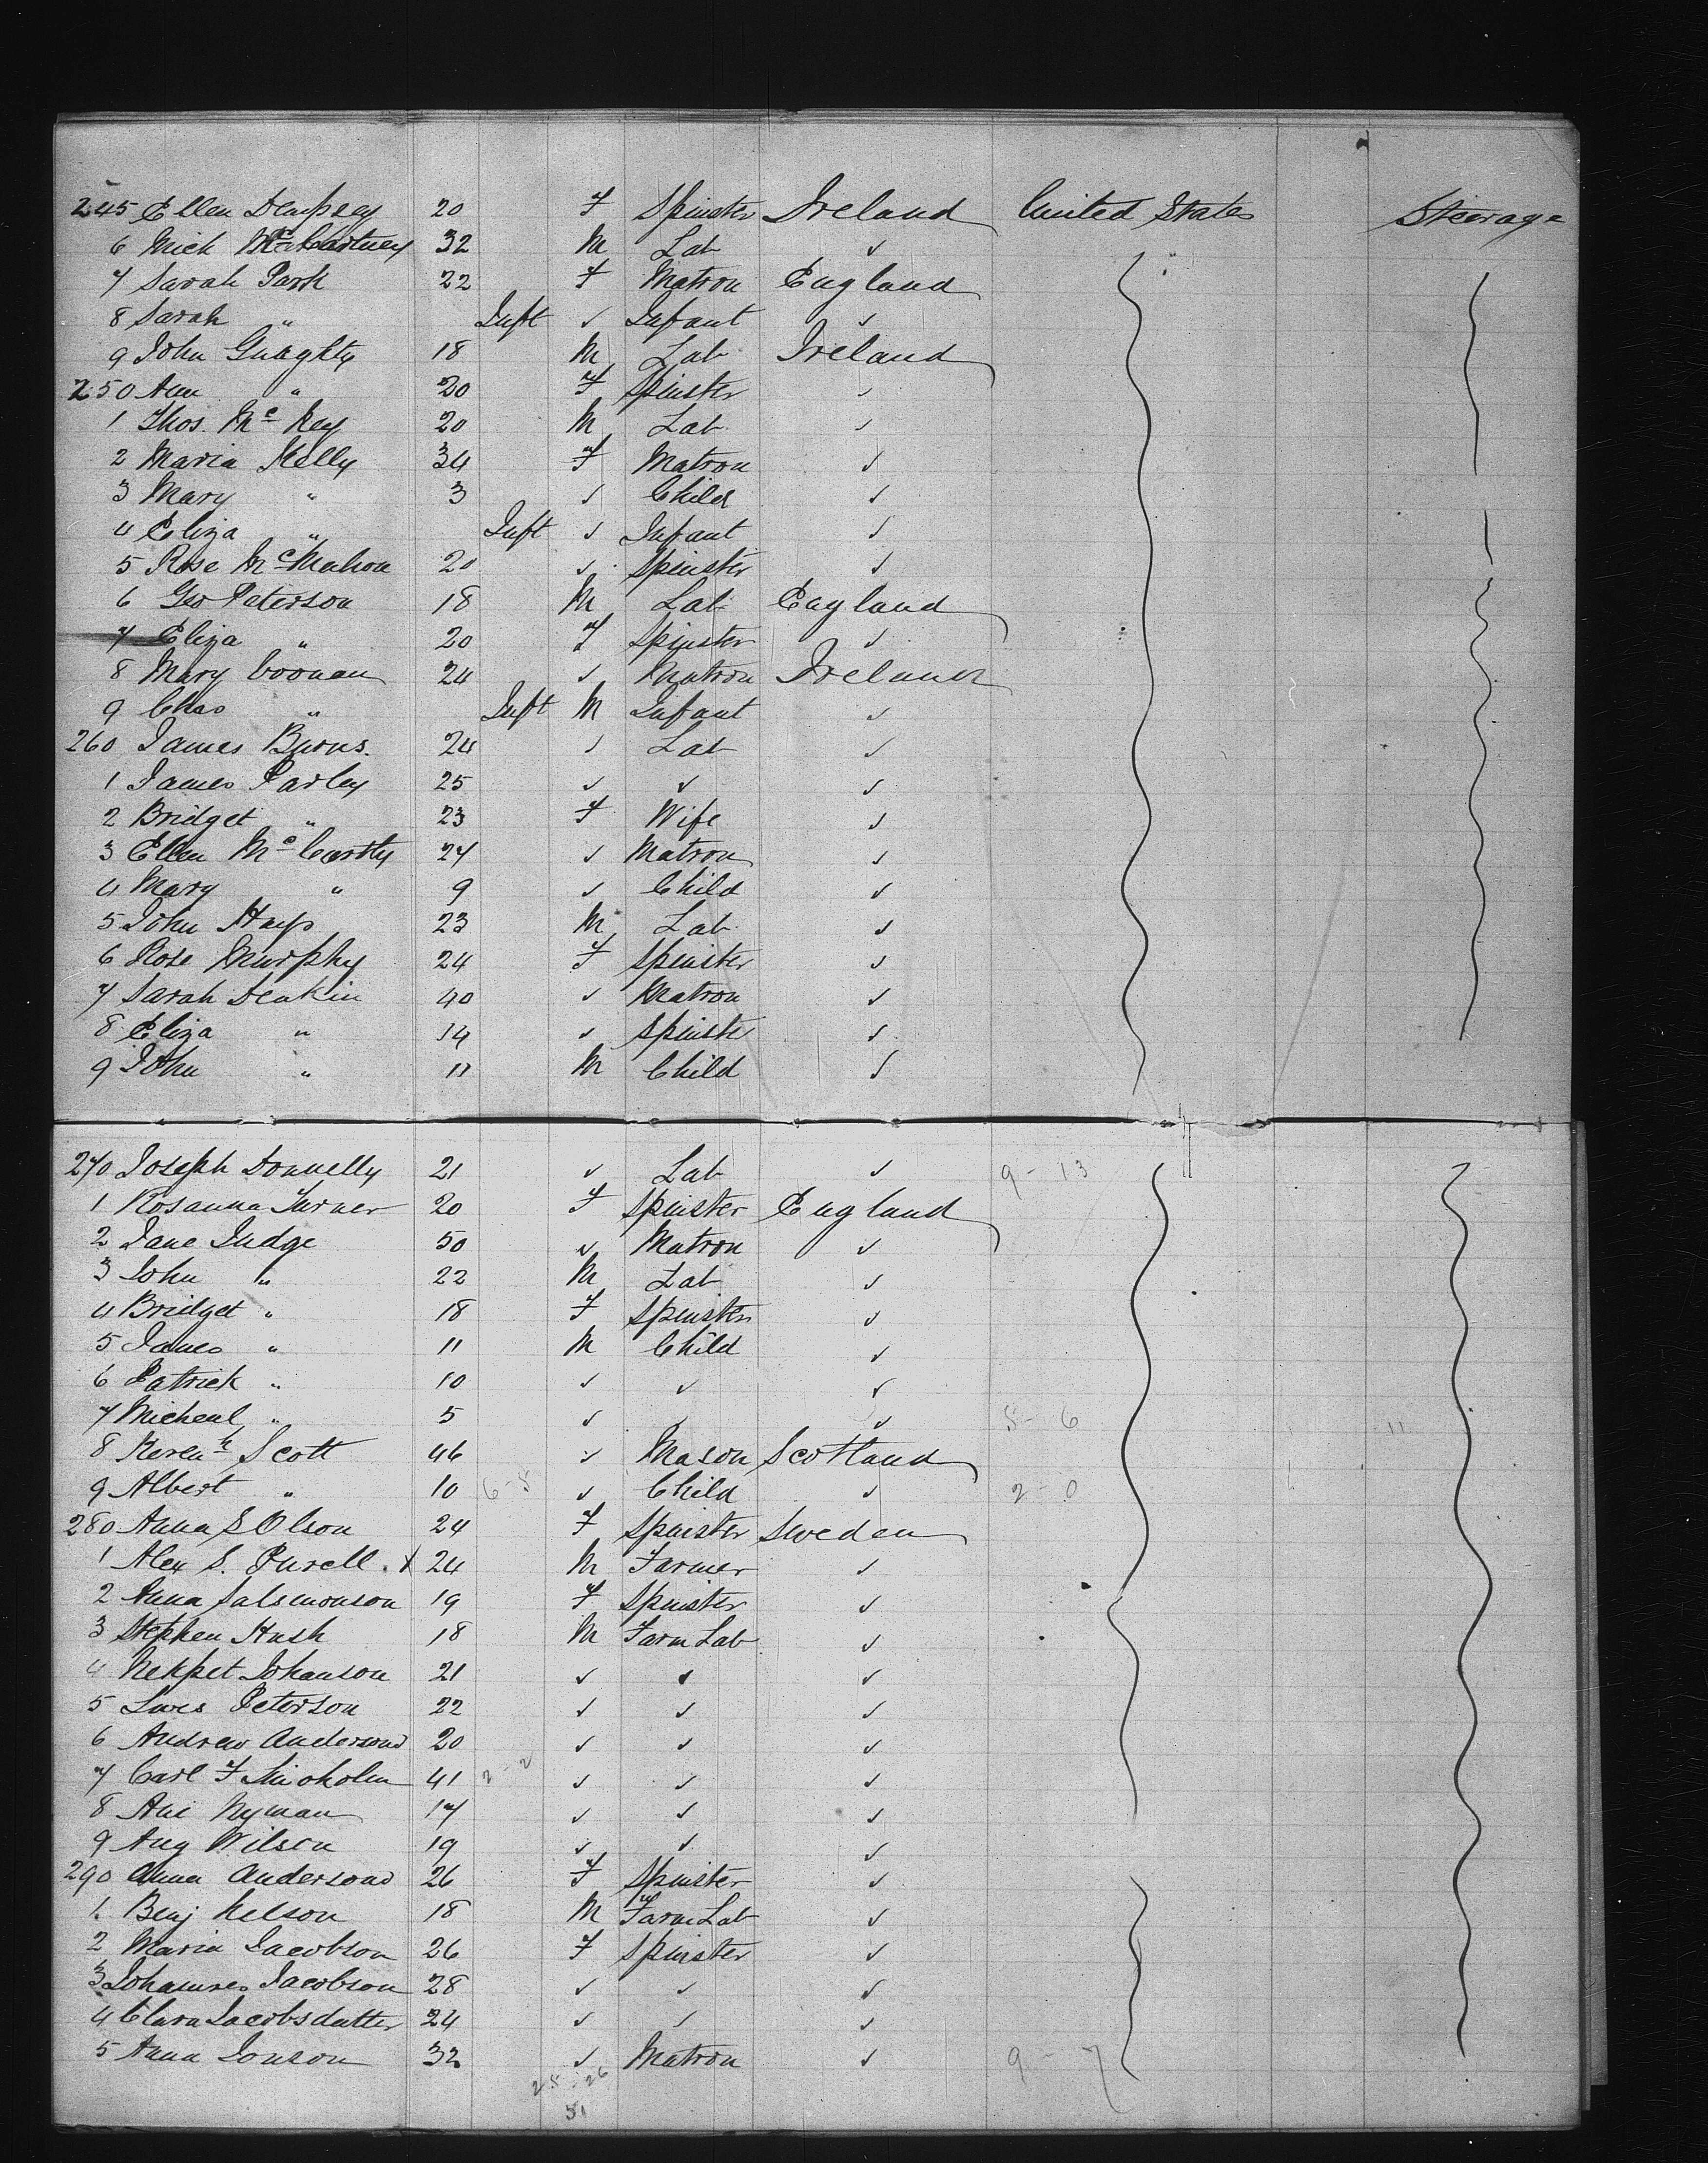 245 Ellen Dempsey 20 F Spinster Ireland United States Steerage
6 Mich McCartney 32 M Lab ✓
7 Sarah Park 22 F Matron England
8 Sarah " Inft ✓ Infant ✓
9 John Guaghty 18 M Lab Ireland
250 Ann " 20 F Spinster ✓
1 Thos. Mc Key 20 M Lab ✓
2 Maria Kelly 34 F Matron ✓
3 Mary " 3 ✓ Child ✓
4 Eliza " Inft ✓ Infant ✓
5 Rose McMahon 20 ✓ Spinster ✓
6 Geo Peterson 18 M Lab England
7 Eliza " 20 F Spinster ✓
8 Mary Coonan 24 ✓ Matron Ireland
9 Chas " Inft M Infant ✓
260 James Burns. 24 ✓ Lab ✓
1 James Farley 25 ✓ ✓ ✓
2 Bridget " 23 F Wife ✓
3 Ellen McCarthy 27 ✓ Matron ✓
4 Mary " 9 ✓ Child ✓
5 John Hays 23 M Lab ✓
6 Rose Murphy 24 F Spinster ✓
7 Sarah Deakin 40 ✓ Matron ✓
8 Eliza " 14 ✓ Spinster ✓
9 John " 11 M Child ✓
270 Joseph Donnelly 21 ✓ Lab ✓ 9 - 13
1 Rosanna Turner 20 F Spinster England
2 Jane Judge 50 ✓ Matron ✓
3 John " 22 M Lab ✓
4 Bridget " 18 F Spinster ✓
5 James " 11 M Child ✓
6 Patrick " 10 ✓ ✓ ✓
7 Micheal " 5 ✓ ✓ 5 - 6 11
8 Scott 46 ✓ Mason Scotland
9 Albert " 10 6 - 5 ✓ Child ✓ 2 - 0
280 Anna S Olson 24 F Spinster Sweden
1 Alex S. Purell . X 24 M Farmer ✓
2 Anna Salsmonson 19 F Spinster ✓
3 Stephen Hush 18 M Farm Lab ✓
4 Johanson 21 ✓ ✓ ✓
5 Peterson 22 ✓ ✓ ✓
6 Andrew Anderson 20 ✓ ✓ ✓
7 Carl F 41 2 - 2 ✓ ✓ ✓
8 Nyman 17 ✓ ✓ ✓
9 Aug Wilson 19 ✓ ✓ ✓
290 Anna Anderson 26 F Spinster ✓
1. Benj Nelson 18 M Farm Lab ✓
2 Maria Jacobson 26 F Spinster ✓
3 Johannes Jacobson 28 ✓ ✓ ✓
4 Clara Jacobsdatter 24 ✓ ✓ ✓
5 Anna Jonson 32 ✓ Matron ✓ 9 - 7
25 - 26
51